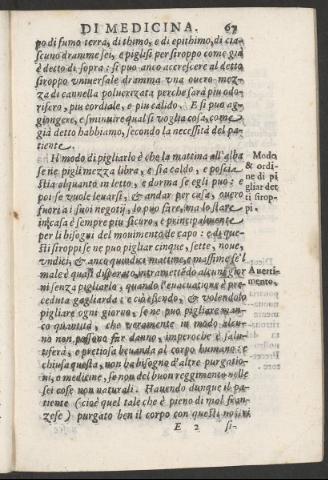 DI MEDICINA. 67
po di fumo terra, di thimo, e di epithimo, di cia-
scuno dramme sei, e piglisi per siroppo come già
è detto di sopra: si può anco accrescere al detto
siroppo vniuersale dramma vna ouero mez-
za di cannella poluerizata perche sarà piu odo-
rifero, piu cordiale, e piu calido. E si può ag-
giongere, e sminuire qual si voglia cosa, come
già detto habbiamo, secondo la necessità del pa-
tiente.
Il modo di pigliarlo è che la mattina all'alba
se ne pigli mezza libra, e sia caldo, e poscia
stia alquanto in letto, e dorma se egli può: e
poi se vuole leuarsi, & andar per casa, ouero
fuori a i suoi negotij, lo può fare, ma lo stare
in casa è sempre piu sicuro, e principalmente
per li bisogni del mouimento de capo: e di que-
sti siroppi se ne può pigliare cinque, sette, noue,
vndici, & anco quindici mattine, e massime se'l
male è quasi disperato, intramettendo alcun gior
ni senza pigliarlo, quando l'euacuatione è pre-
ceduta gagliarda: e ciò essendo, & volendolo
pigliare ogni giorno, se ne può pigliare man-
co quantità, che veramente in modo alcu-
no non possono far danno, imperoche è salu-
tifera, e pretiosa beuanda al corpo humano: e
chi usa questa, non ha bisogno d'altre purgatio-
ni, o medicine, se non del buon reggimento nelle
sei cose non naturali. Hauendo dunque il pa-
tiente (cioè quel tale che è pieno di mal fran-
zese) purgato ben il corpo con questi nostri
E 2 si-
Modo
& ordi-
ne di pi
gliar det
ti sirop-
pi.
Auerti-
mento.